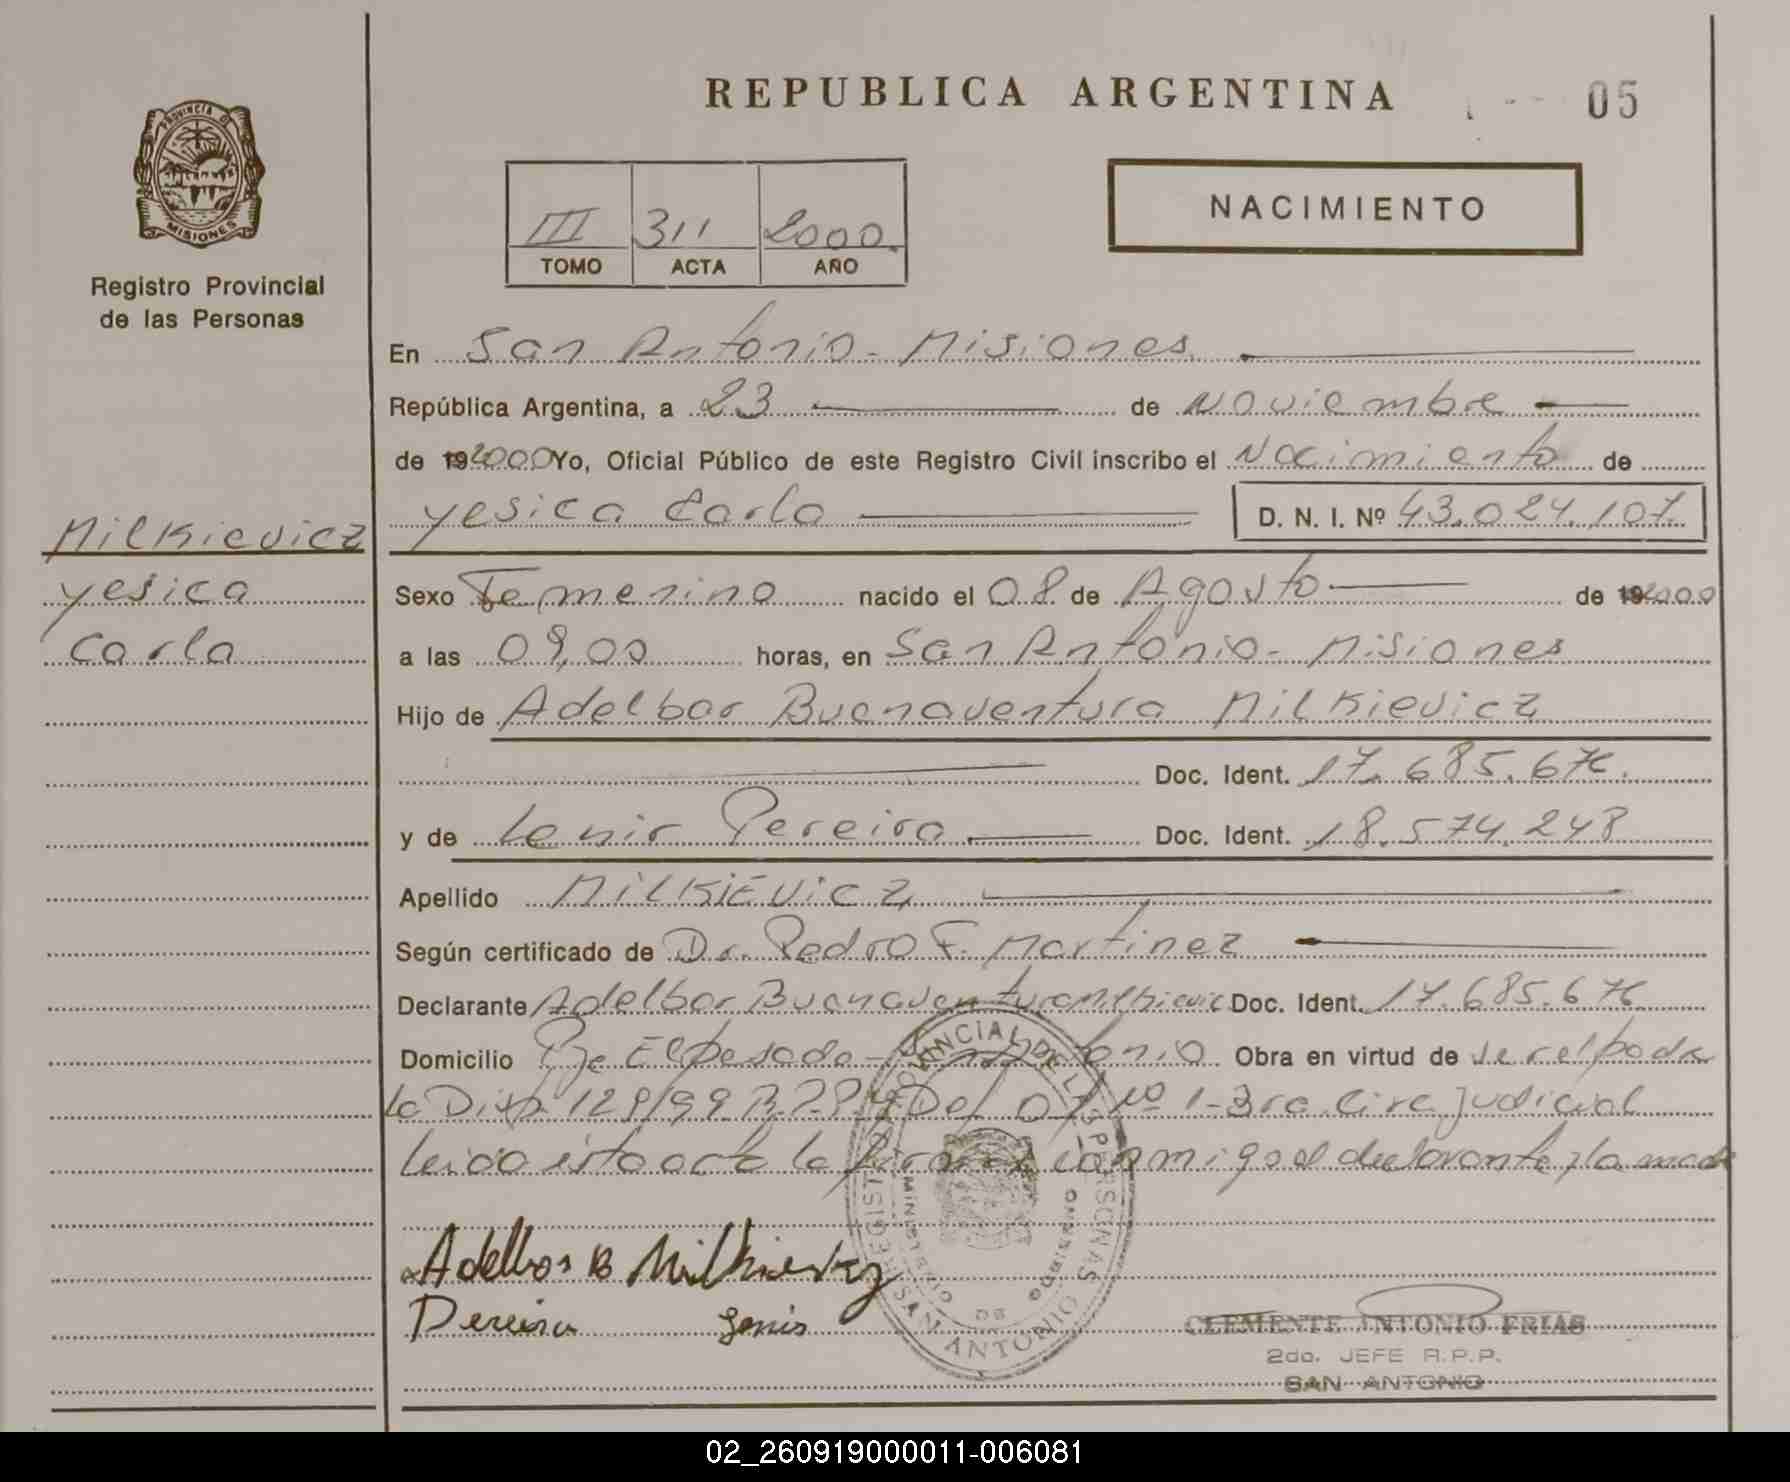 REPUBLICA ARGENTINA
05
PROVINCIA DE
MISIONES
Registro Provincial
de las Personas
III 311 2000
TOMO ACTA AÑO
NACIMIENTO
En San Antonio - Misiones
República Argentina, a 23 de Noviembre
de 192000 Yo, Oficial Público de este Registro Civil inscribo el Nacimiento de
Yesica Carla
D. N. I. Nº 43.024.107
Milkievicz
Yesica
Carla
Sexo Femenino nacido el 08 de Agosto de 192000
a las 09,00 horas, en San Antonio - Misiones
Hijo de Adelbar Buenaventura Milkievicz
Doc. Ident. 17.685.676.
y de Lenir Pereira Doc. Ident. 18.574.248
Apellido MILKIEVICZ
Según certificado de Dr. Pedro F. Martinez
Declarante Adelbar Buenaventura Milkievic Doc. Ident. 17.685.676
Domicilio Pje El Pesado - San Antonio Obra en virtud de ser el padre
la Disp. 129/99 R.P.P. y Def. Of. Nº 1 - 3ra Circ. Judicial
leida esta acta la firman conmigo el declarante y la madre
Adelbar B Milkievicz
Pereira Lenir
REGISTRO PROVINCIAL DE LAS PERSONAS
MINISTERIO DE GOBIERNO
SAN ANTONIO
CLEMENTE ANTONIO FRIAS
2do. JEFE R.P.P.
SAN ANTONIO
02_260919000011-006081